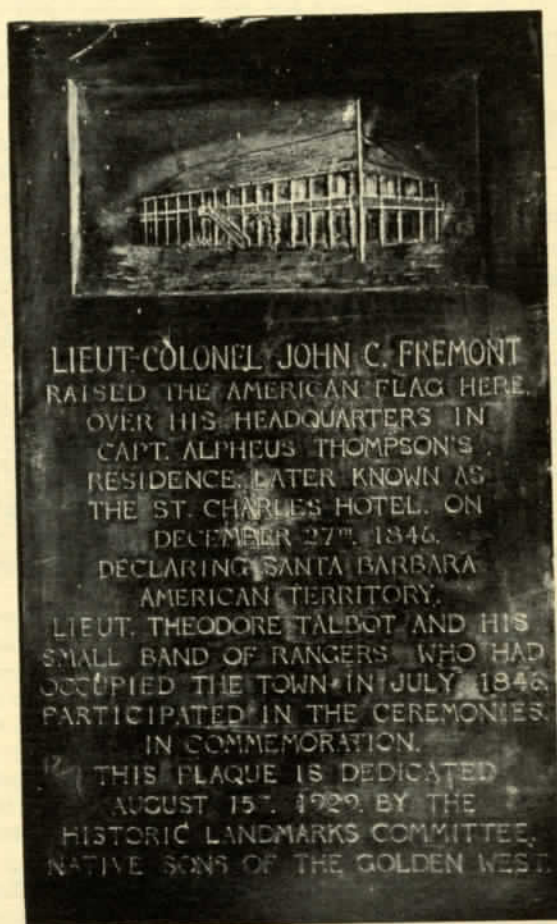 LIEUT-COLONEL JOHN C. FREMONT
RAISED THE AMERICAN FLAG HERE,
OVER HIS HEADQUARTERS IN
CAPT. ALPHEUS THOMPSON'S
RESIDENCE, LATER KNOWN AS
THE ST. CHARLES HOTEL, ON
DECEMBER 27TH, 1846,
DECLARING SANTA BARBARA
AMERICAN TERRITORY.
LIEUT. THEODORE TALBOT AND HIS
SMALL BAND OF RANGERS WHO HAD
OCCUPIED THE TOWN IN JULY 1846
PARTICIPATED IN THE CEREMONIES.
IN COMMEMORATION.
THIS PLAQUE IS DEDICATED
AUGUST 15T. 1929. BY THE
HISTORIC LANDMARKS COMMITTEE,
NATIVE SONS OF THE GOLDEN WEST.